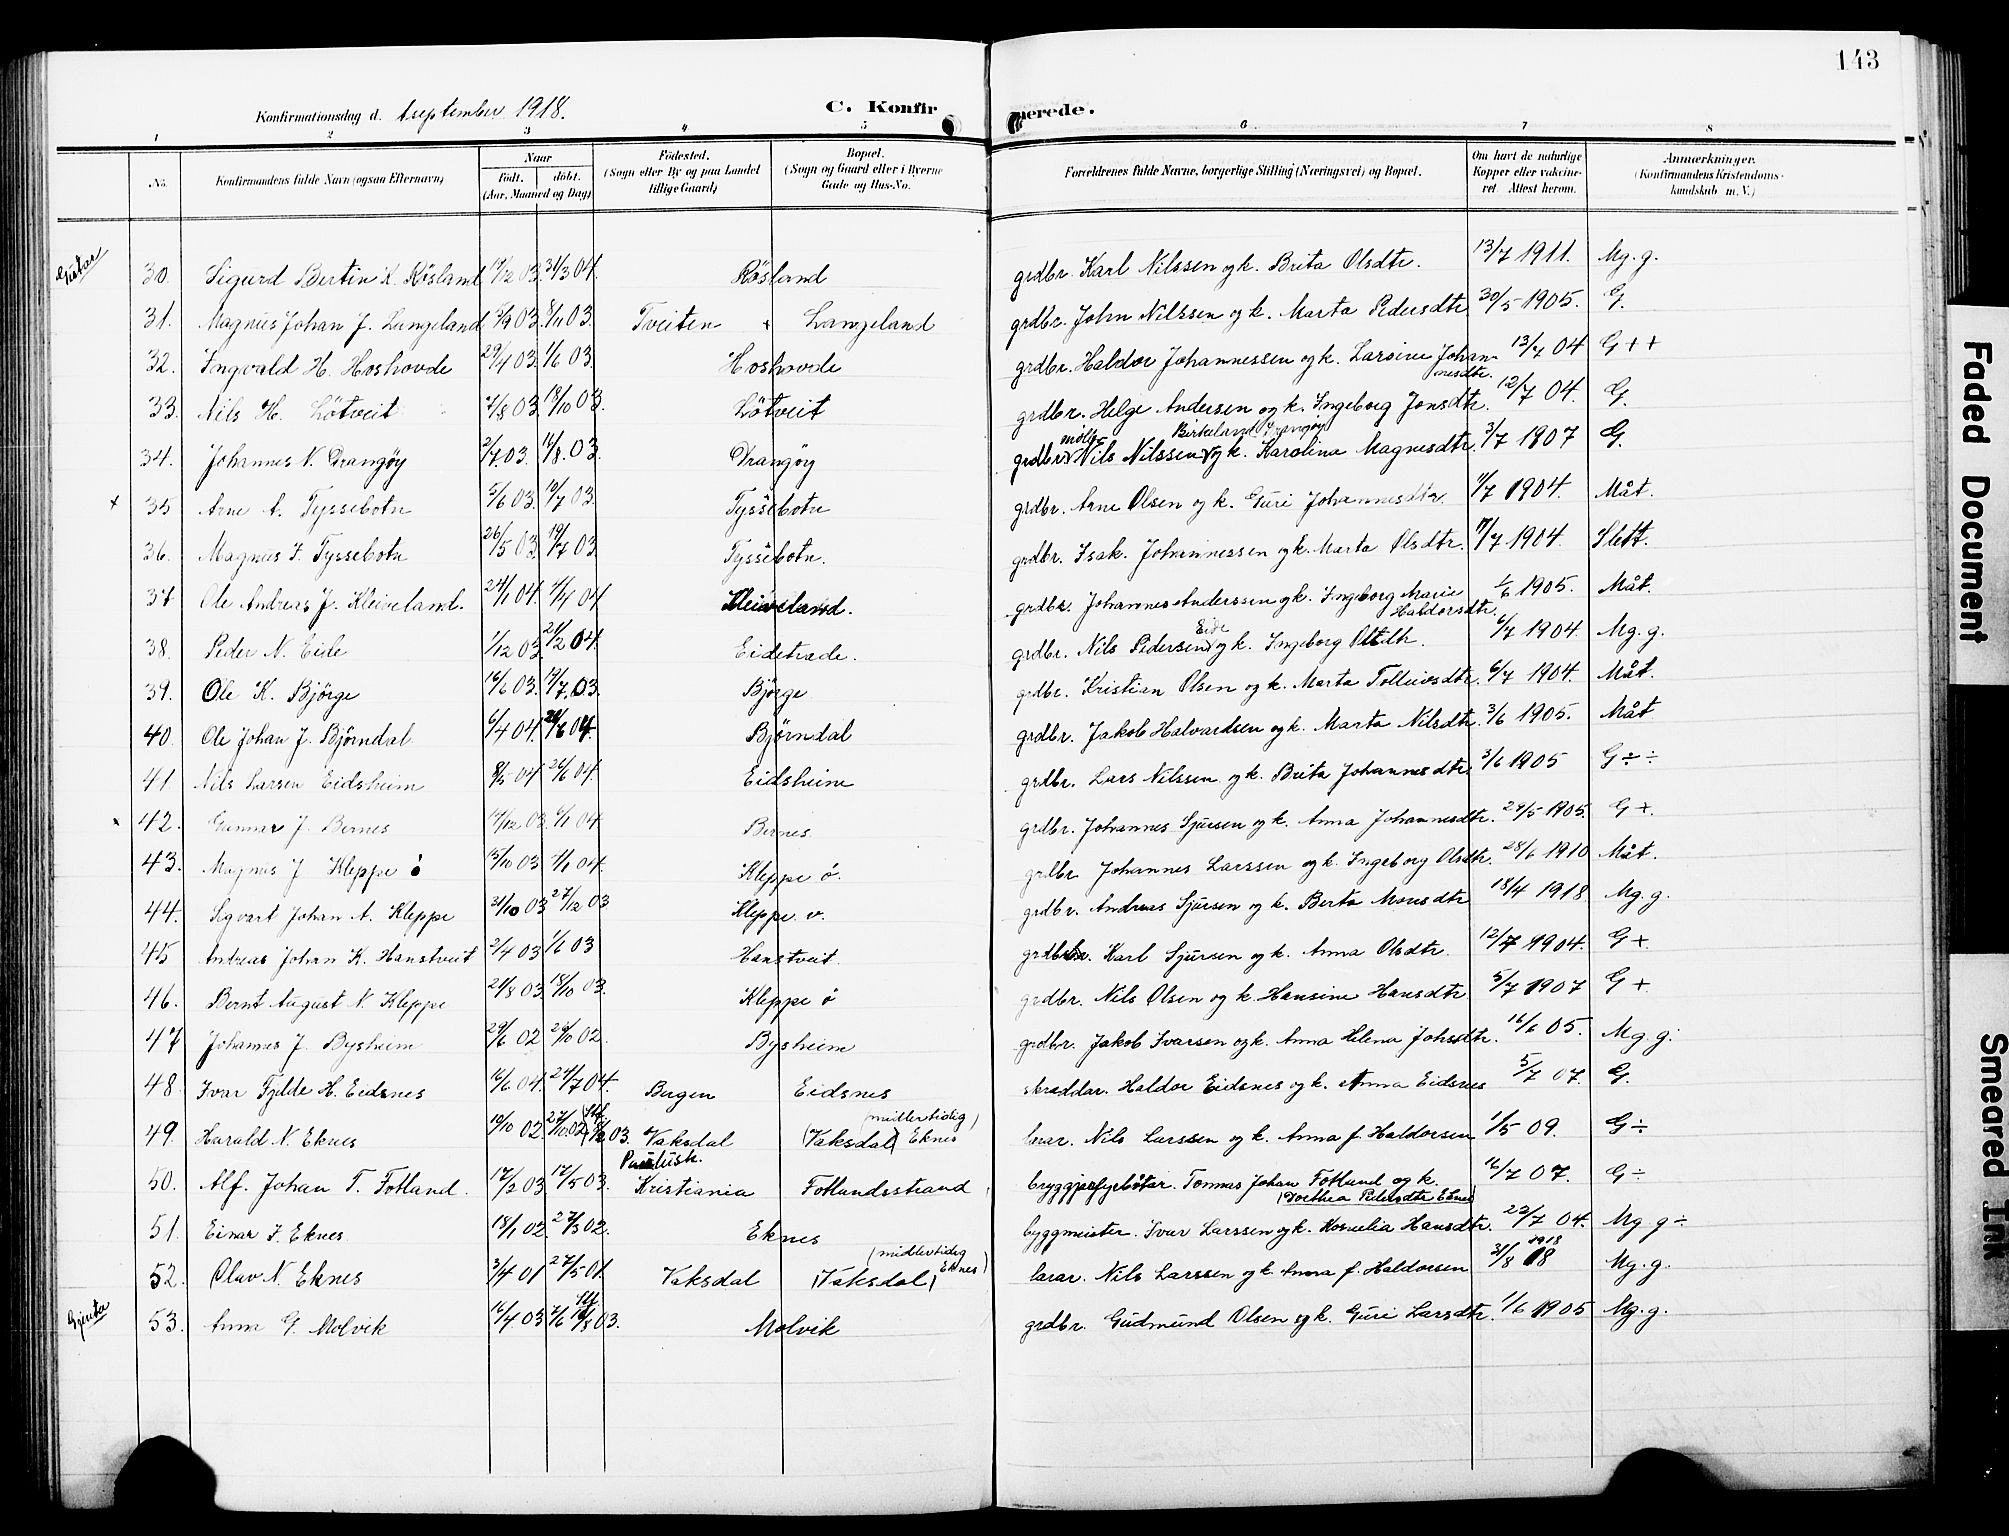 143
Konfirmationsdag d. 1 september 1918. C. Konfirmerede.
1 2 3 4 5 6 7 8
No. Konfirmandens fulde Navn (ogsaa Efternavn) Naar Født. døbt. (Aar, Maaned og Dag) Fødested. (Sogn eller By og paa Landet tillige Gaard) Bopæl. (Sogn og Gaard eller i Byerne Gade og Hus-No. Forældrenes fulde Navne, borgerlige Stilling (Næringsvei) og Bopæl. Om havt de naturlige Kopper eller vakcineret. Attest herom. Anmærkninger. (Konfirmandens Kristendomskundskab m. V.)
30. Sigurd Bertin K. Røsland 31/3 04. Røsland grdbr. Karl Nilssen og k. Brita Olsdtr. 13/7 1911. Mg. g.
31. Magnus Johan J. Langeland 5/9 03. 8/11 03. Tveiten Langeland grdbr. John Nilssen og k. Marta Pedersdtr. 30/5 1905. G.
32. Ingvald H. Hoshovde 29/4 03. 1/6 03. Hoshovde grdbr. Haldor Johannessen og k. Larsine Johannesdtr. 13/7 04 G + +
33. Nils H. Løtveit 7/8 03. 18/10 03. Løtveit grdbr. Helge Andersen og k. Ingeborg Jonsdtr. 12/7 04. G.
34. Johannes N. Drangøy 2/7 03. 16/8. 03. Drangøy grdbr. Nils Nilssen Birkeland Drangøy og k. Karolina Magnesdtr. 3/7 1907 G.
+ 35 Arne A. Tyssebotn 5/6 03. 10/7 03. Tyssebotn grdbr. Arne Olsen og k. Guri Johannesdtr. 1904. Måt.
36. Magnus I. Tyssebotn 26/5 03. 19/7 03. Tyssebotn. grdbr. Isak Johannessen og k. Marta Olsdtr. 1904. Slett.
37 Ole Andreas J. Kleiveland. 24/1 04. 4/4 04 Kleiveland. grdbr. Johannes Anderssen og k. Ingeborg Marie Haldorsdtr. 1/6 1905. Måt.
38. Peder N. Eide 1/12 03. 21/2 04. Eidetræde. grdbr. Nils Pedersen Eide og k. Ingeborg Olsdtr. 6/7 1904. Mg. g.
39. Ole K. Bjørge 16/6 03. 19/7. 03. Bjørge grdbr. Kristian Olsen og k. Marta Tolleivsdtr. 6/7 1904. Måt.
40. Ole Johan J. Bjørndal 6/4 04. 26/6 04. Bjørndal grdbr. Jakob Halvardsen og k. Marta Nilsdtr. 3/6 1905. Måt
41. Nils Larsen Eidsheim 8/5 04. 26/6 04. Eidsheim grdbr. Lars Nilssen og k. Brita Johannesdtr. 3/6 1905 G ÷ ÷
42. Gunnar J. Bernes 6/1 04. Bernes. grdbr. Johannes Sjursen og k. Anna Johannesdtr. 29/5 1905. G +.
43. Magnus J. Kleppe ø 13/10 03 04. Kleppe ø. grdbr. Johannes Larssen og k. Ingeborg Olsdtr. 28/6 1910 Måt.
44. Sigvart Johan A. Kleppe 21/10 03 27/12 03 Kleppe v. grdbr. Andreas Sjursen og k. Berta Monsdtr 18/4 1918. Mg. g.
45 Andreas Johan K. Hanstveit 2/4 03 1/6 03 Hanstveit. grdbr. Karl Sjursen og k. Anna Olsdtr. 12/7 1904. G +.
46. Bernt August N. Kleppe 03. 18/10 03. Kleppe ø grdbr. Nils Olsen og k. Hansine Hansdtr 5/7 1907 G +
47 Johannes J. Bysheim 29/6 02 26/10 02. Bysheim grdbr. Jakob Ivarsen og k. Anna Helena Johsdtr. 16/6 05. Mg. g.
48. Ivar Fjelde H. Eidsnes 16/6 04. 24/7 04. Bergen Eidsnes skræddar. Haldor Eidsnes og k. Anna Eidsnes 5/7 07. G.
49. Harald N. Eknes 19/10 02. 27/10. 02 03. Vaksdal (Vaksdal) Eknes (midlertidig) lærar. Nils Larssen og k. Anna f. Haldorsen 1/5 09. G ÷
50. Alf. Johan T. Fotland. 17/2 03. 17/5 03. Kristiania Fotlandsstrand Tomas Johan Fotland og k. (Dorthea Pedersdtr Eknes) 16/7 07. G ÷
51. Einar I. Eknes 18/1 02. 27/3 02. Eknes byggmeister. Ivar Larssen og k. Kornelia Hansdtr. 23/7 04. Mg. g ÷
52. Olav N. Eknes 3/4 01 27/5 01. Vaksdal (Vaksdal) (midlertidig Eknes) lærar. Nils Larssen og k. Anna f. Haldorsen 31/8 18 1918 Mg. g.
Gjenta 53. Anna G. Molvik 16/4 03 03. Molvik grdbr. Gudmund Olsen og k. Guri Larsdtr. 1/6 1905 Mg. g.
Faded Document
Smeared Ink